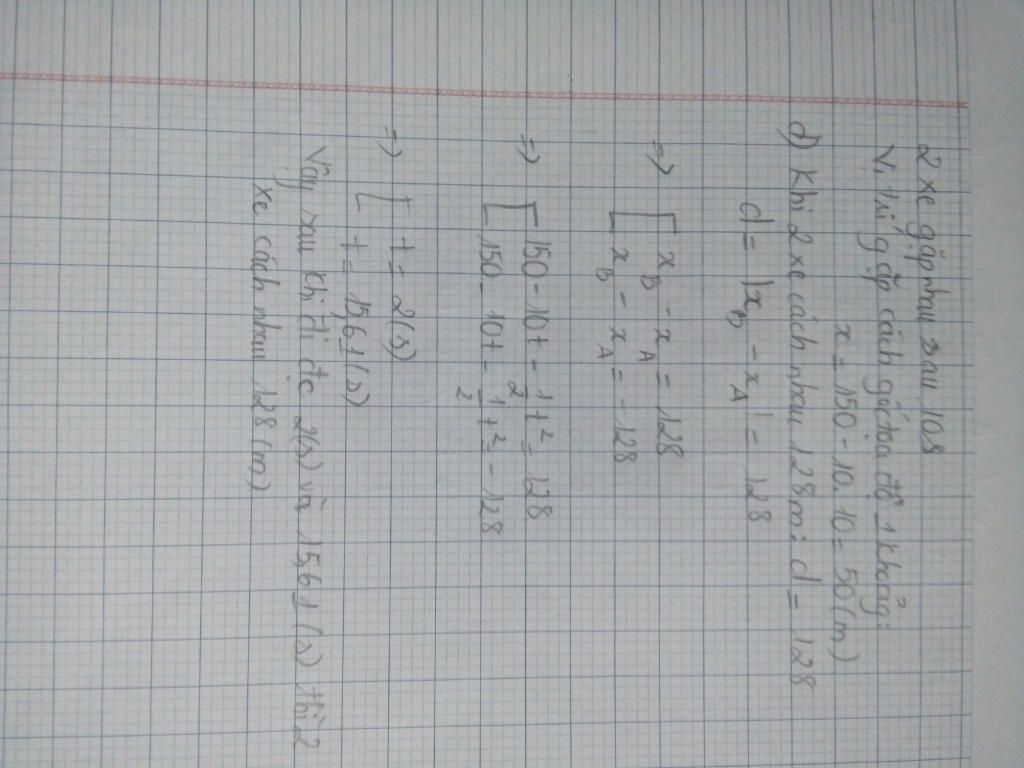 2 xe gặp nhau sau 10s
Vị trí gặp cách gốc tọa độ 1 khoảg:
x = 150 - 10.10 = 50 (m)
d) Khi 2 xe cách nhau 128m: d = 128
d = |x_B - x_A| = 128
=> [ x_B - x_A = 128
x_B - x_A = -128
=> [ 150 - 10t - 1/2 t² = 128
150 - 10t - 1/2 t² = -128
=> [ t = 2(s)
t = 15,61 (s)
Vậy sau khi đi đc 2(s) và 15,61 (s) thì 2
xe cách nhau 128 (m)